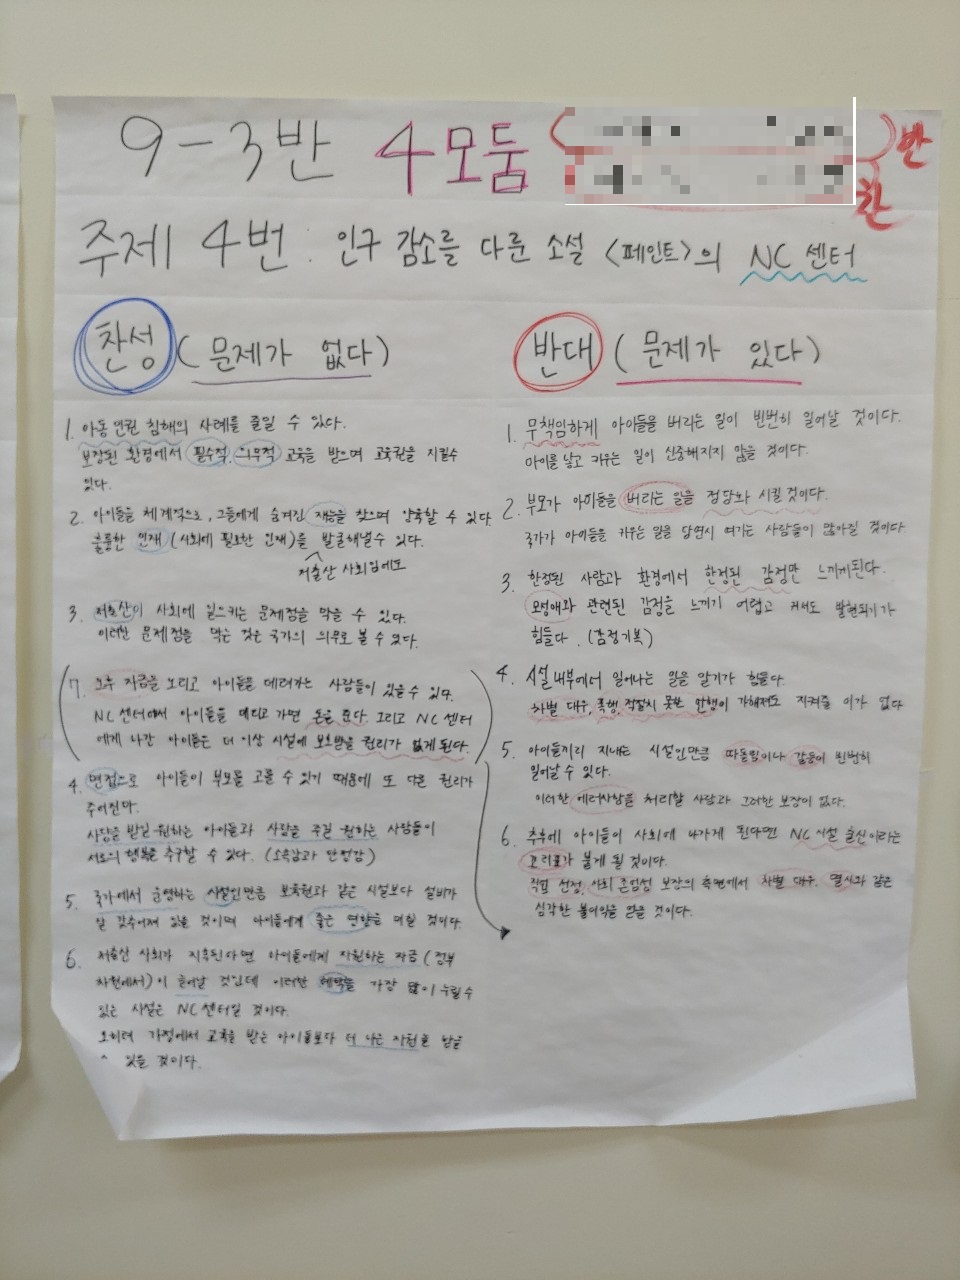 9-3반 4모둠
반
찬
주제 4번 : 인구 감소를 다룬 소설 <페인트>의 NC 센터
찬성 (문제가 없다)
1. 아동 인권 침해의 사례를 줄일 수 있다.
보장된 환경에서 필수적, 의무적 교육을 받으며 교육권을 지킬수
있다.
2. 아이들을 체계적으로, 그들에게 숨겨진 재능을 찾으며 양육할 수 있다
훌륭한 인재 (사회에 필요한 인재)를 발굴해낼수 있다.
저출산 사회임에도
3. 저출산이 사회에 일으키는 문제점을 막을 수 있다.
이러한 문제점을 막는 것은 국가의 의무로 볼 수 있다.
7. 노후 자금을 노리고 아이들을 데려가는 사람들이 있을 수 있다.
NC 센터에서 아이들을 데리고 가면 돈을 준다. 그리고 NC 센터
에게 나간 아이들은 더 이상 시설에 보호받을 권리가 없게 된다.
4. 면접으로 아이들이 부모를 고를 수 있기 때문에 또 다른 권리가
주어진다.
사랑을 받길 원하는 아이들과 사랑을 주길 원하는 사람들이
서로의 행복을 추구할 수 있다. (소속감과 안정감)
5. 국가에서 운영하는 시설인만큼 보육원과 같은 시설보다 설비가
잘 갖추어져 있을 것이며 아이들에게 좋은 영향을 미칠 것이다.
6. 저출산 사회가 지속된다면 아이들에게 지원하는 자금 (정부
차원에서)이 늘어날 것인데 이러한 혜택을 가장 많이 누릴 수
있는 시설은 NC 센터일 것이다.
오히려 가정에서 교육을 받는 아이들보다 더 나은 지원을 받을
수 있을 것이다.
반대 (문제가 있다)
1. 무책임하게 아이들을 버리는 일이 빈번히 일어날 것이다.
아이를 낳고 키우는 일이 신중해지지 않을 것이다.
2. 부모가 아이들을 버리는 일을 정당화 시킬 것이다.
국가가 아이들을 키우는 일을 당연시 여기는 사람들이 많아질 것이다
3. 한정된 사람과 환경에서 한정된 감정만 느끼게된다.
모성애와 관련된 감정을 느끼기 어렵고 커서도 발현되기가
힘들다. (감정기복)
4. 시설 내부에서 일어나는 일을 알기가 힘들다.
차별 대우, 폭행, 적절치 못한 만행이 가해져도 지켜줄 이가 없다
5. 아이들끼리 지내는 시설인만큼 따돌림이나 갈등이 빈번히
일어날 수 있다.
이러한 애러사항을 처리할 사람과 그러한 보장이 없다.
6. 추후에 아이들이 사회에 나가게 된다면 NC 시설 출신이라는
꼬리표가 붙게 될 것이다.
직업 선정, 사회 존엄성 보장의 측면에서 차별 대우, 멸시와 같은
심각한 불이익을 얻을 것이다.